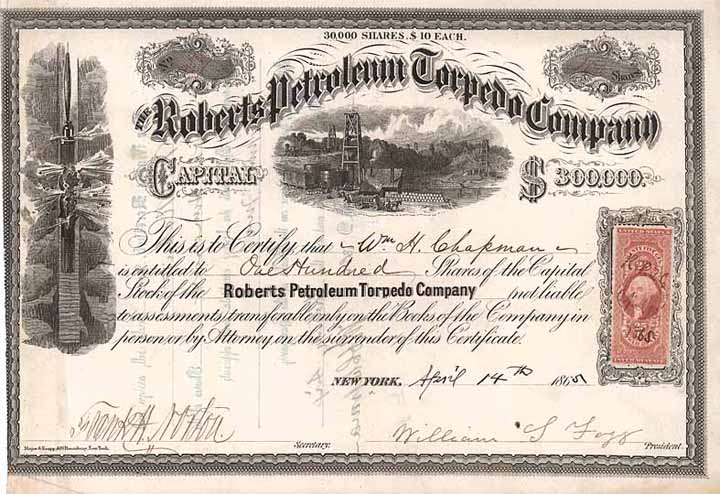 30,000 SHARES, $10 EACH.
No
Shares
THE Roberts Petroleum Torpedo Company
CAPITAL $300,000.
This is to Certify, that Wm H. Chapman
is entitled to One Hundred Shares of the Capital
Stock of the Roberts Petroleum Torpedo Company not liable
to assessments, transferable only on the Books of the Company in
person or by Attorney on the surrender of this Certificate.
NEW YORK. April 14th 1865
UNITED STATES
Secretary.
William S Fogg
President.
Major & Knapp, 449 Broadway, New York.